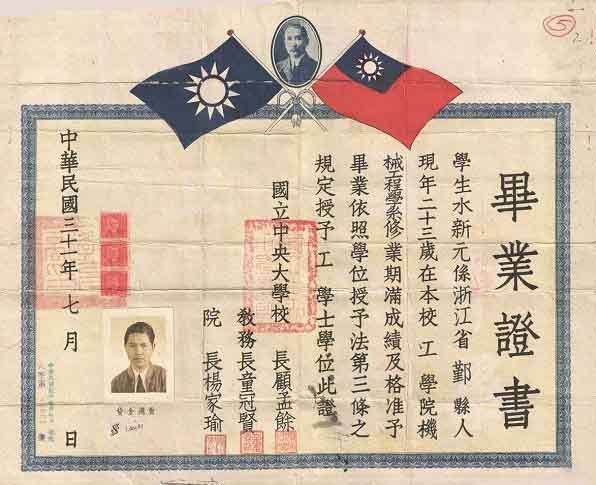 畢業證書
學生水新元係浙江省鄞縣人
現年二十三歲在本校工學院機
械工程學系修業期滿成績及格准予
畢業依照學位授予法第三條之
規定授予工學士學位此證
國立中央大學校長顧孟餘
教務長童冠賢
院長楊家瑜
中華民國三十一年七月日
5